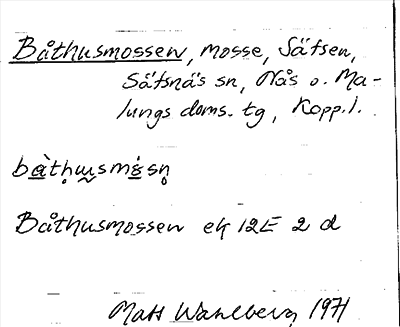 Båthusmossen, mosse, Säfsen,
Säfsnäs sn, Nås o. Ma-
lungs doms. tg, Kopp.l.
Båthusmossen ek 12E 2 d
Mats Wahlberg 1971